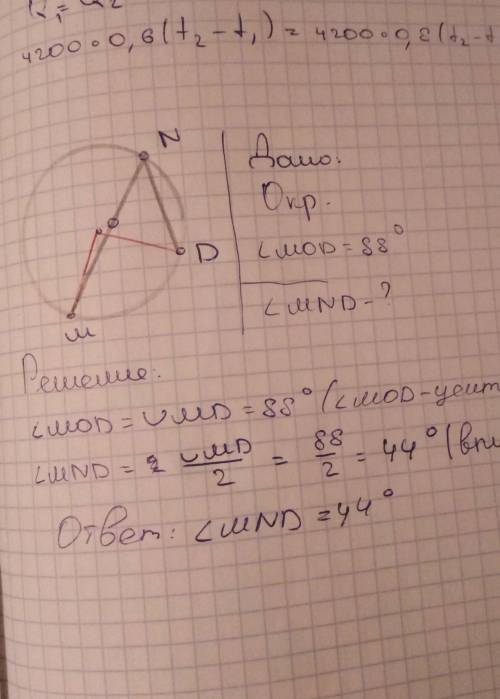 4200·0,6(t₂-t₁)=4200·0,8(t₂-t
N
Дано:
Окр.
∠MOD=88°
D
∠MND-?
M
Решение:
∠MOD=◡MD=88°(∠MOD-цент
∠MND= ◡MD/2 = 88/2 = 44°(впи
Ответ: ∠MND=44°